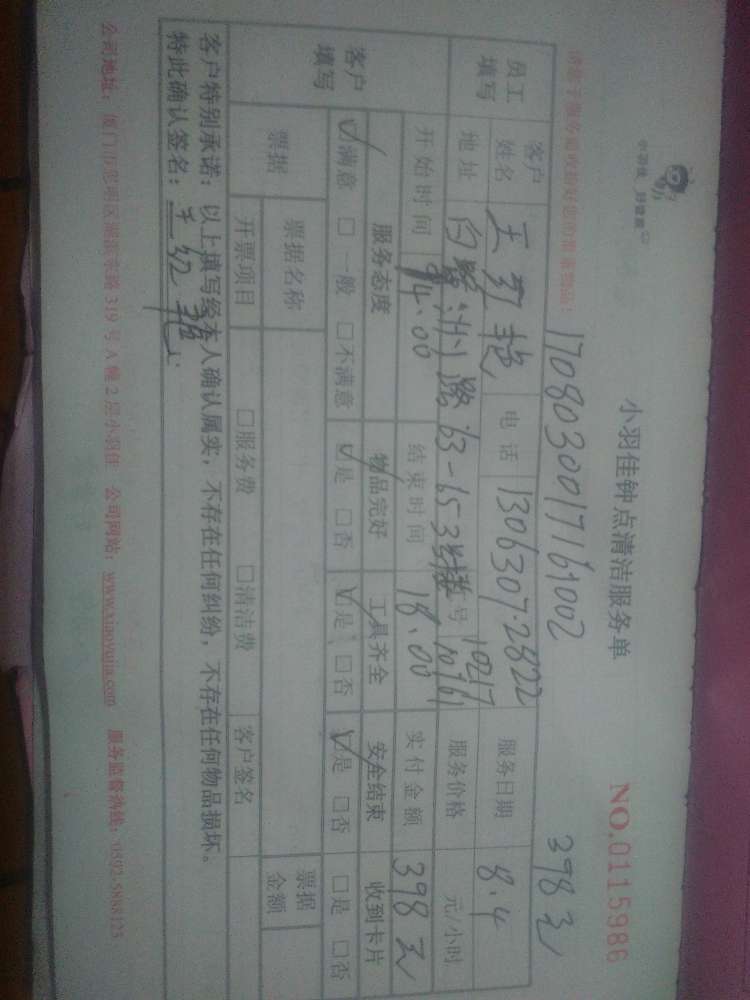 小羽佳 好管家
小羽佳钟点清洁服务单
NO.0115986
请您于服务前收捡好您的贵重物品:
1708030017161002
398元
员工填写
客户姓名
电话 13063072822
服务日期 8.4
地址 白鹭洲路63-65 3楼
工号 10217
服务价格 元/小时
客户填写
开始时间 14.00
结束时间 18.00
实付金额 398元
服务态度 物品完好 工具齐全 安全结束 收到卡片
☑满意 □一般 □不满意 ☑是 □否 ☑是 □否 ☑是 □否 □是 □否
票据
票据名称
票据金额
开票项目 □服务费 □清洁费 客户签名
客户特别承诺:以上填写经本人确认属实,不存在任何纠纷,不存在任何物品损坏。
特此确认签名:
公司地址:厦门市思明区湖滨东路319号A幢2层小羽佳 公司网站:www.xiaoyujia.com 服务监督热线:0592-5888125